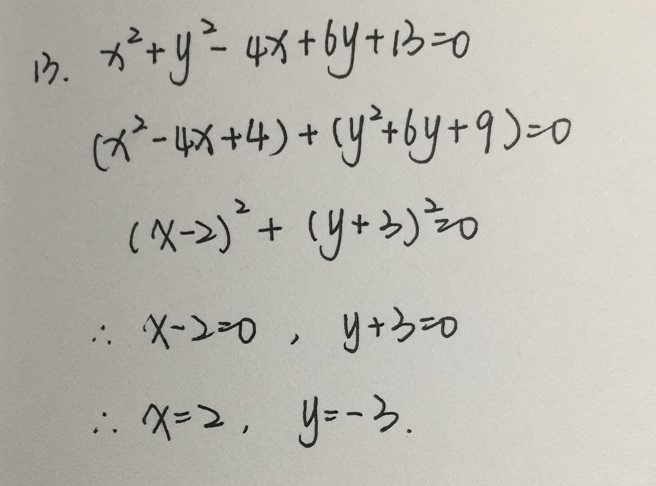 13. x²+y²-4x+6y+13=0
(x²-4x+4)+(y²+6y+9)=0
(x-2)²+(y+3)²=0
∴ x-2=0, y+3=0
∴ x=2, y=-3.